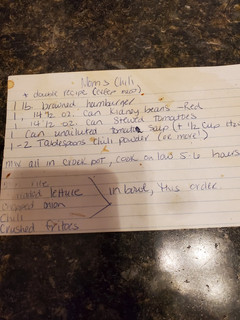 Mom's Chili
* double recipe (after mico)
1 lb. browned hamburger
1, 14 1/2 oz. can kidney beans - Red
1, 14 1/2 oz. can Stewed tomatoes
1 Can undiluted tomato soup (+ 1/2 cup H2O
1-2 Tablespoons chili powder (or more!)
mix all in crock pot, cook on low 5-6 hours
lettuce in bowl, this order
onion
Chili
Crushed fritoes